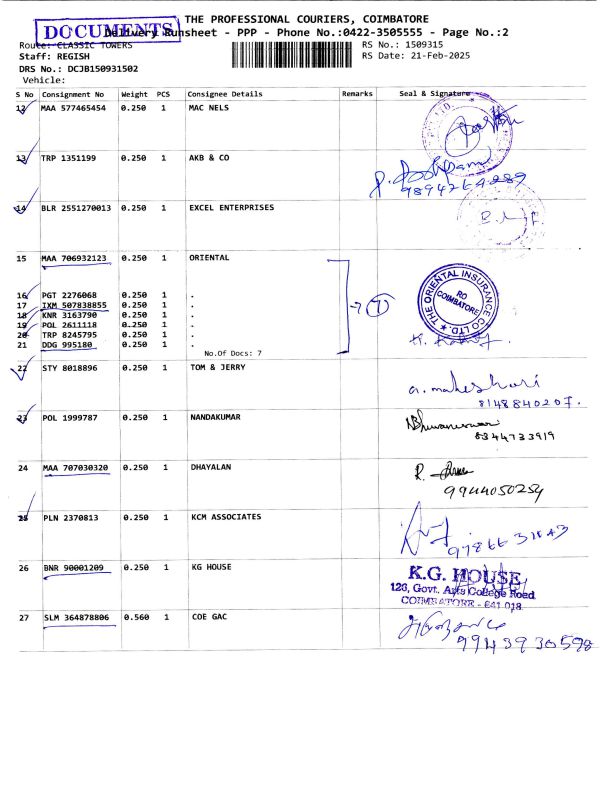 THE PROFESSIONAL COURIERS, COIMBATORE
DOCUMENTS
Delivery Runsheet - PPP - Phone No.:0422-3505555 - Page No.:2
Route: CLASSIC TOWERS
RS No.: 1509315
Staff: REGISH
RS Date: 21-Feb-2025
DRS No.: DCJB150931502
Vehicle:
S No Consignment No Weight PCS Consignee Details Remarks Seal & Signature
12 MAA 577465454 0.250 1 MAC NELS
13 TRP 1351199 0.250 1 AKB & CO
9894269289
14 BLR 2551270013 0.250 1 EXCEL ENTERPRISES
15 MAA 706932123 0.250 1 ORIENTAL
16 PGT 2276068 0.250 1 .
17 IXM 507838855 0.250 1 .
18 KNR 3163790 0.250 1 .
19 POL 2611118 0.250 1 .
20 TRP 8245795 0.250 1 .
21 DDG 995180 0.250 1 .
No.Of Docs: 7
7
THE ORIENTAL INSURANCE CO LTD.
RO
COIMBATORE
22 STY 8018896 0.250 1 TOM & JERRY
a. maheshwari
8148840207.
23 POL 1999787 0.250 1 NANDAKUMAR
NBhuvaneswari
8344733919
24 MAA 707030320 0.250 1 DHAYALAN
9944050254
25 PLN 2370813 0.250 1 KCM ASSOCIATES
9786631843
26 BNR 90001209 0.250 1 KG HOUSE
K.G. HOUSE,
126, Govt. Arts College Road
COIMBATORE - 641 018
27 SLM 364878806 0.560 1 COE GAC
9943930598